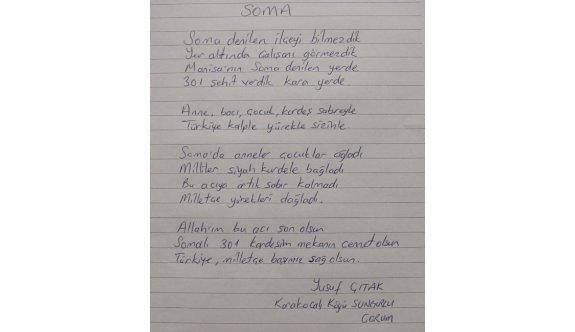 SOMA
Soma denilen ilçeyi bilmezdik
Yer altında çalışanı görmezdik
Manisa'nın Soma denilen yerde
301 şehit verdik kara yerde.
Anne, bacı, çocuk, kardeş sabreyle
Türkiye kalple yürekle sizinle.
Soma'da anneler çocuklar ağladı
Milletler siyah kurdele bağladı
Bu acıya artık sabır kalmadı
Milletçe yürekleri dağladı.
Allah'ım bu acı son olsun
Somalı 301 kardeşim mekanın cennet olsun
Türkiye, milletçe başımız sağ olsun.
Yusuf ÇITAK
Karakocalı Köyü SUNGURLU
ÇORUM